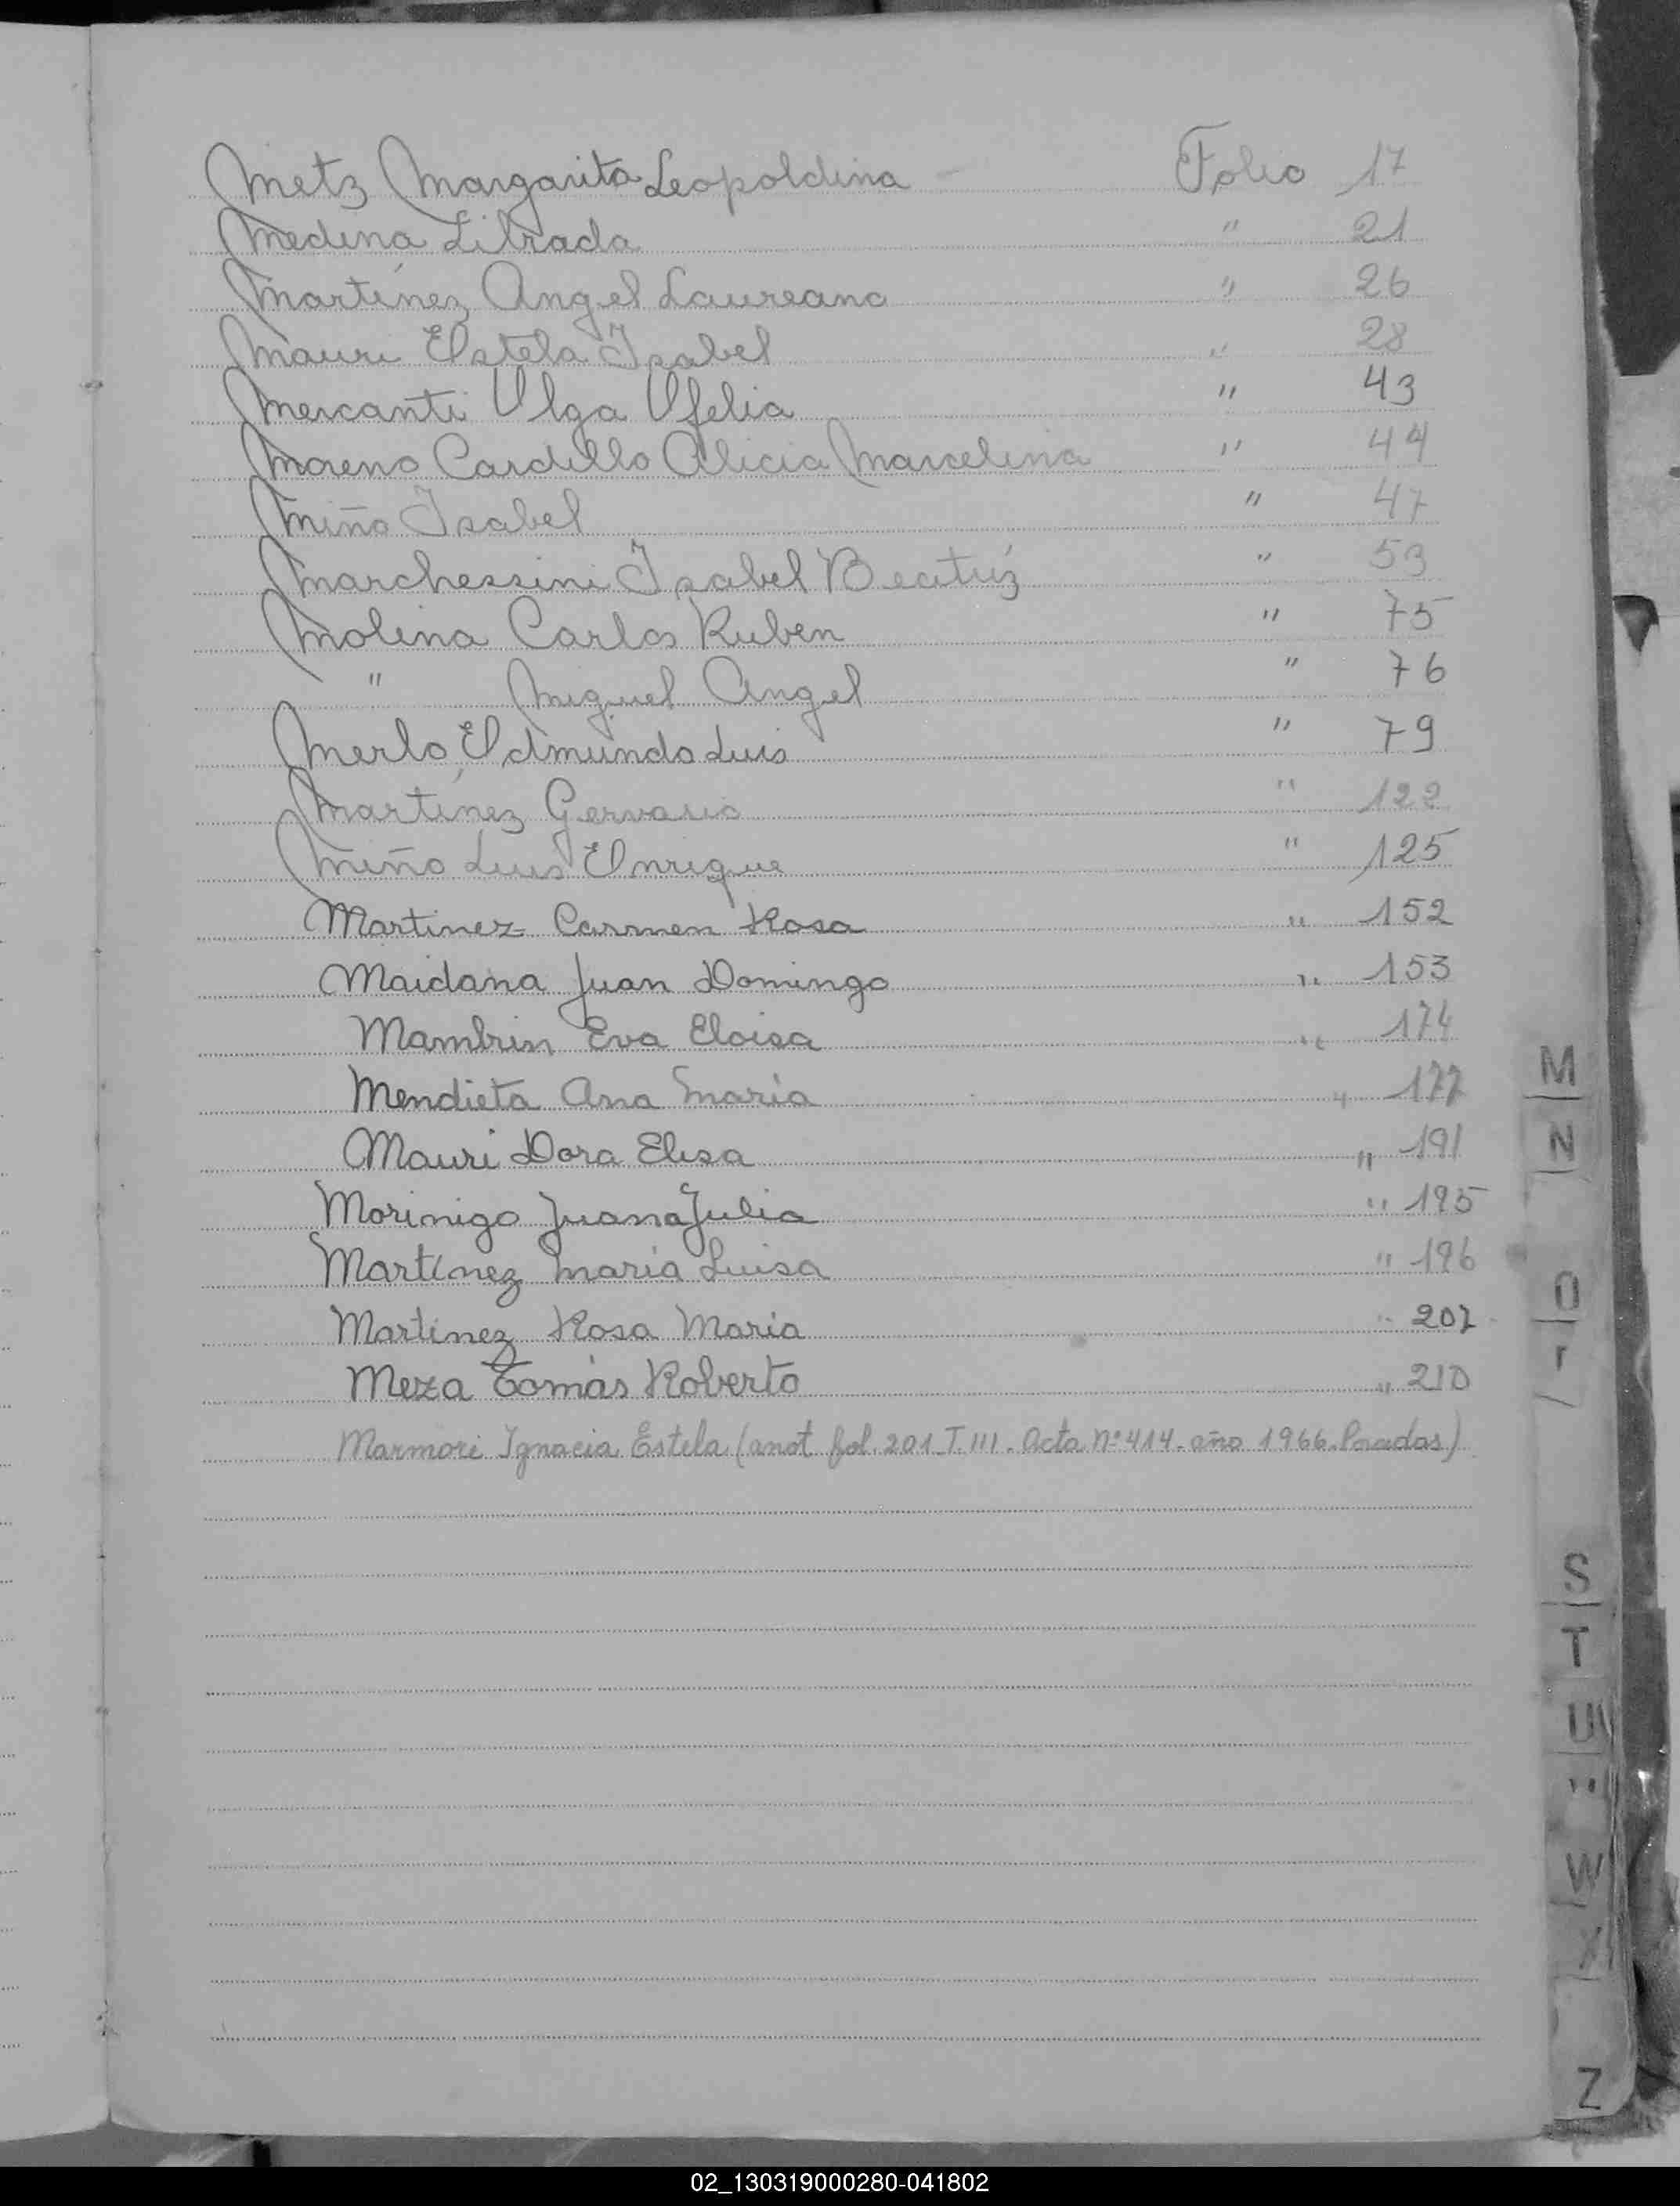 Metz Margarita Leopoldina Folio 17
Medina Librada " 21
Martínez Angel Laureano " 26
Mauri Estela Isabel " 28
Mercanti Olga Ofelia " 43
Moreno Cardillo Alicia Marcelina " 44
Miño Isabel " 47
Marchessini Isabel Beatríz " 53
Molina Carlos Ruben " 75
" Miguel Angel " 76
Merlo Edmundo Luis " 79
Martínez Gervasio " 122
Miño Luis Enrique " 125
Martinez Carmen Rosa " 152
Maidana Juan Domingo " 153
Mambrin Eva Eloisa " 174
Mendieta Ana María " 177
Mauri Dora Elisa " 191
Morinigo Juana Julia " 195
Martínez María Luisa " 196
Martinez Rosa Maria " 207
Meza Tomás Roberto " 210
Marmori Ignacia Estela (anot fol. 201 T. III. Acta Nº 414. año 1966. Posadas)
M
N
O
S
T
U
W
X
Z
02_130319000280-041802